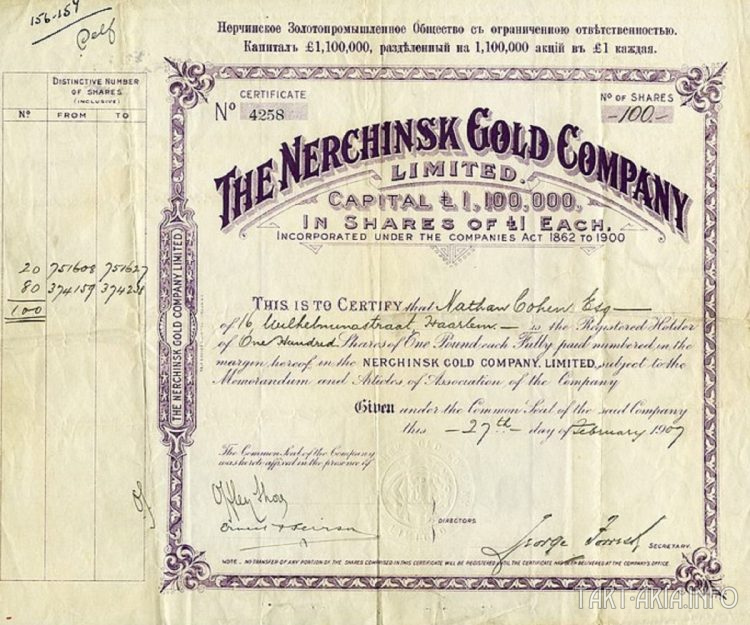 156-157
Нерчинское Золотопромышленное Общество съ ограниченною отвѣтственостью.
Капиталъ £1,100,000, раздѣленный на 1,100,000 акцій въ £1 каждая.
DISTINCTIVE NUMBER
OF SHARES
(INCLUSIVE)
No FROM TO
20 751608 751627
80 374159 374238
100
CERTIFICATE
No 4258
No OF SHARES
-100-
THE NERCHINSK GOLD COMPANY
LIMITED.
CAPITAL £1,100,000,
IN SHARES OF £1 EACH.
INCORPORATED UNDER THE COMPANIES ACT 1862 TO 1900
THE NERCHINSK GOLD COMPANY LIMITED
THIS IS TO CERTIFY that Nathan Cohen Esq
of 16, Wilhelminastraat, Haarlem. is the Registered Holder
of One Hundred Shares of One Pound each Fully paid numbered in the
margin hereof in the NERCHINSK GOLD COMPANY, LIMITED, subject to the
Memorandum and Articles of Association of the Company
Given under the Common Seal of the said Company
this 27th day of February 1907
The Common Seal of the Company
was hereto affixed in the presence of
DIRECTORS.
George Forrest SECRETARY.
NOTE. NO TRANSFER OF ANY PORTION OF THE SHARES COMPRISED IN THIS CERTIFICATE WILL BE REGISTERED UNTIL THE CERTIFICATE HAS BEEN DELIVERED AT THE COMPANY'S OFFICE.
TAKT-AKIA.INFO